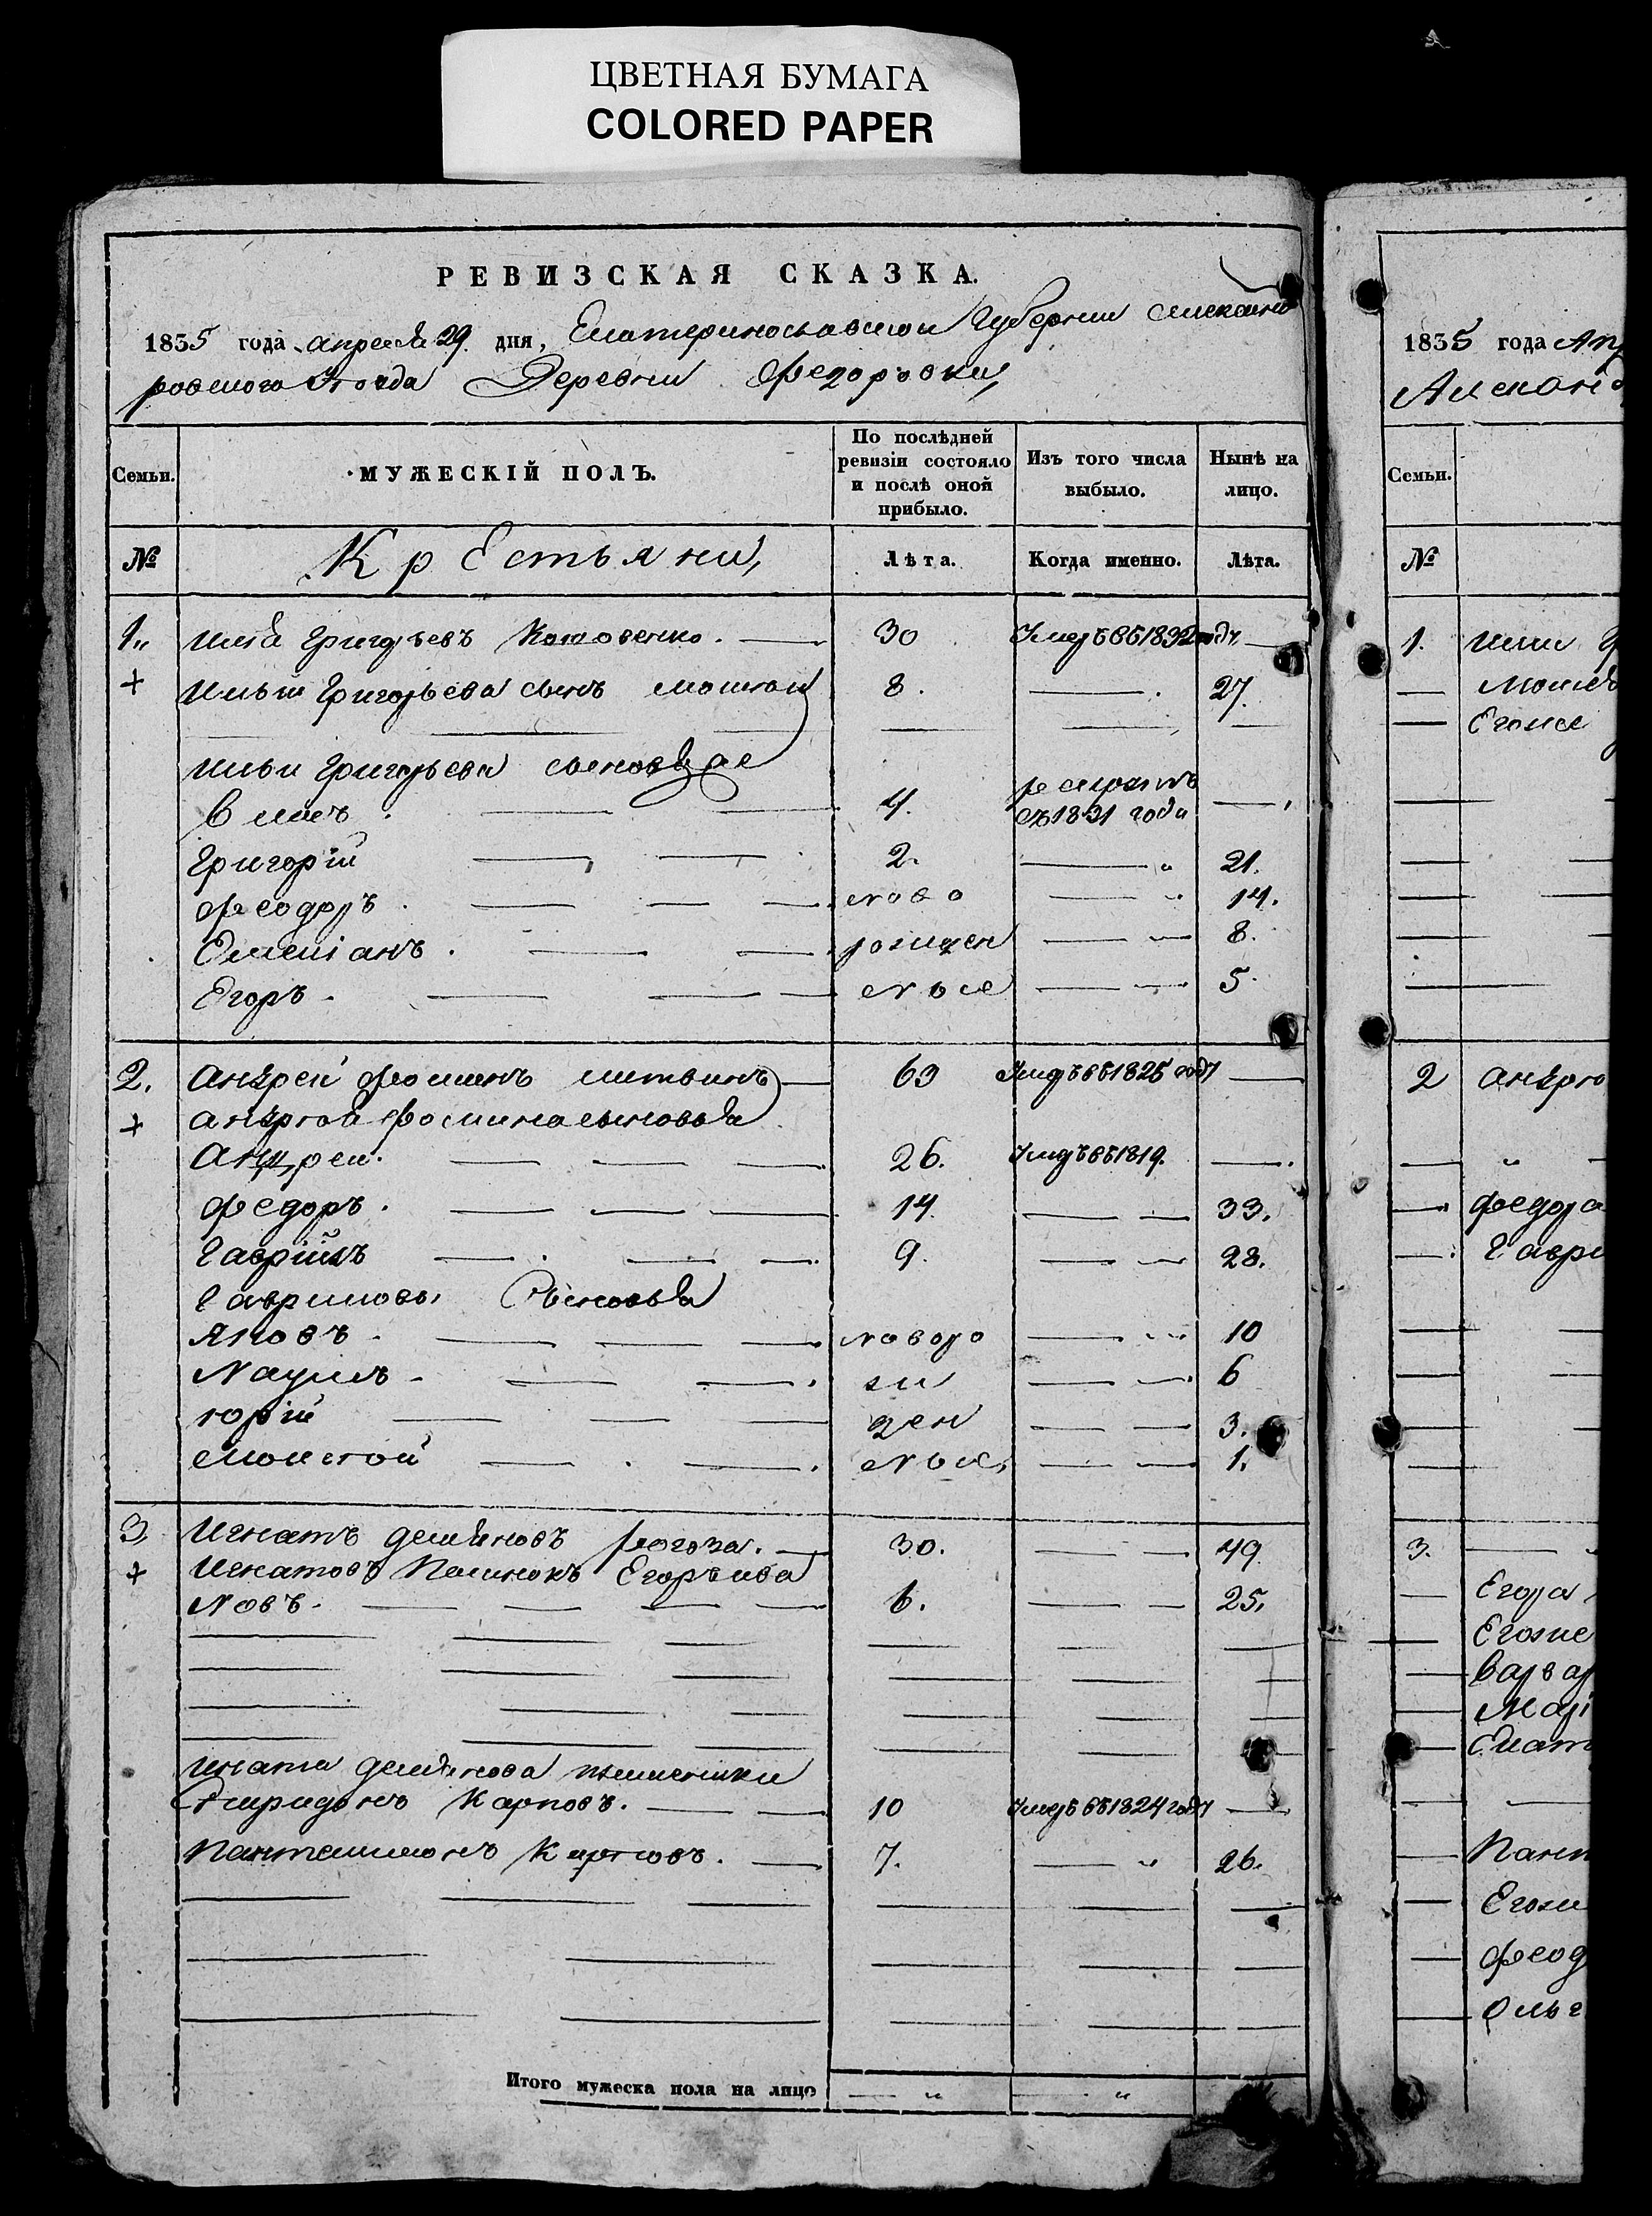 ЦВЕТНАЯ БУМАГА
COLORED PAPER
РЕВИЗСКАЯ СКАЗКА.
1835 года апреля 29. дня, Екатеринославской Губернии Александ
ровского Уезда Деревни Федоровки,
Семьи.
МУЖЕСКІЙ ПОЛЪ.
По послѣдней ревизіи состояло и послѣ оной прибыло.
Изъ того числа выбыло.
Нынѣ на лицо.
№
Крестьяни,
Лѣта.
Когда именно.
Лѣта.
1. Илья Григорьевъ 30 Умеръ въ 1832 году
+ Ильи Григорьева сынъ 8. 27.
Ильи Григорьева сыновья
4. съ 1831 года
Григорій 2. 21.
Феодоръ. ново 14.
Емеліанъ. рожден 8.
Егоръ. ные 5.
2. Андрей Фоминъ Литвинъ 63 Умеръ въ 1825 году
+ Андрея Фомина сыновья
Андрей. 26. Умеръ въ 1819.
Федоръ. 14. 33.
Гаврійлъ 9. 28.
Гавриловы Сыновья
Яковъ. новоро 10
Наумъ. ж 6
Юрій ден 3.
Моисей ные 1.
3. Игнатъ Демяновъ Рогоза. 30. 49.
+ Игнатовъ Егоръ Ива
новъ. 6. 25.
Игната Демянова племяники
Спиридонъ Карповъ. 10 Умеръ въ 1824 году
Пантелимонъ Карповъ. 7. 26.
Итого мужеска пола на лицо
1835 года Апр
Александ
Семьи.
№
1. Ильи Г
Егоже
2 Андрея
Федора
Гаври
3.
Егора
Егоже
Варвар
Марі
Екат
Пант
Егоже
Феод
Ольг